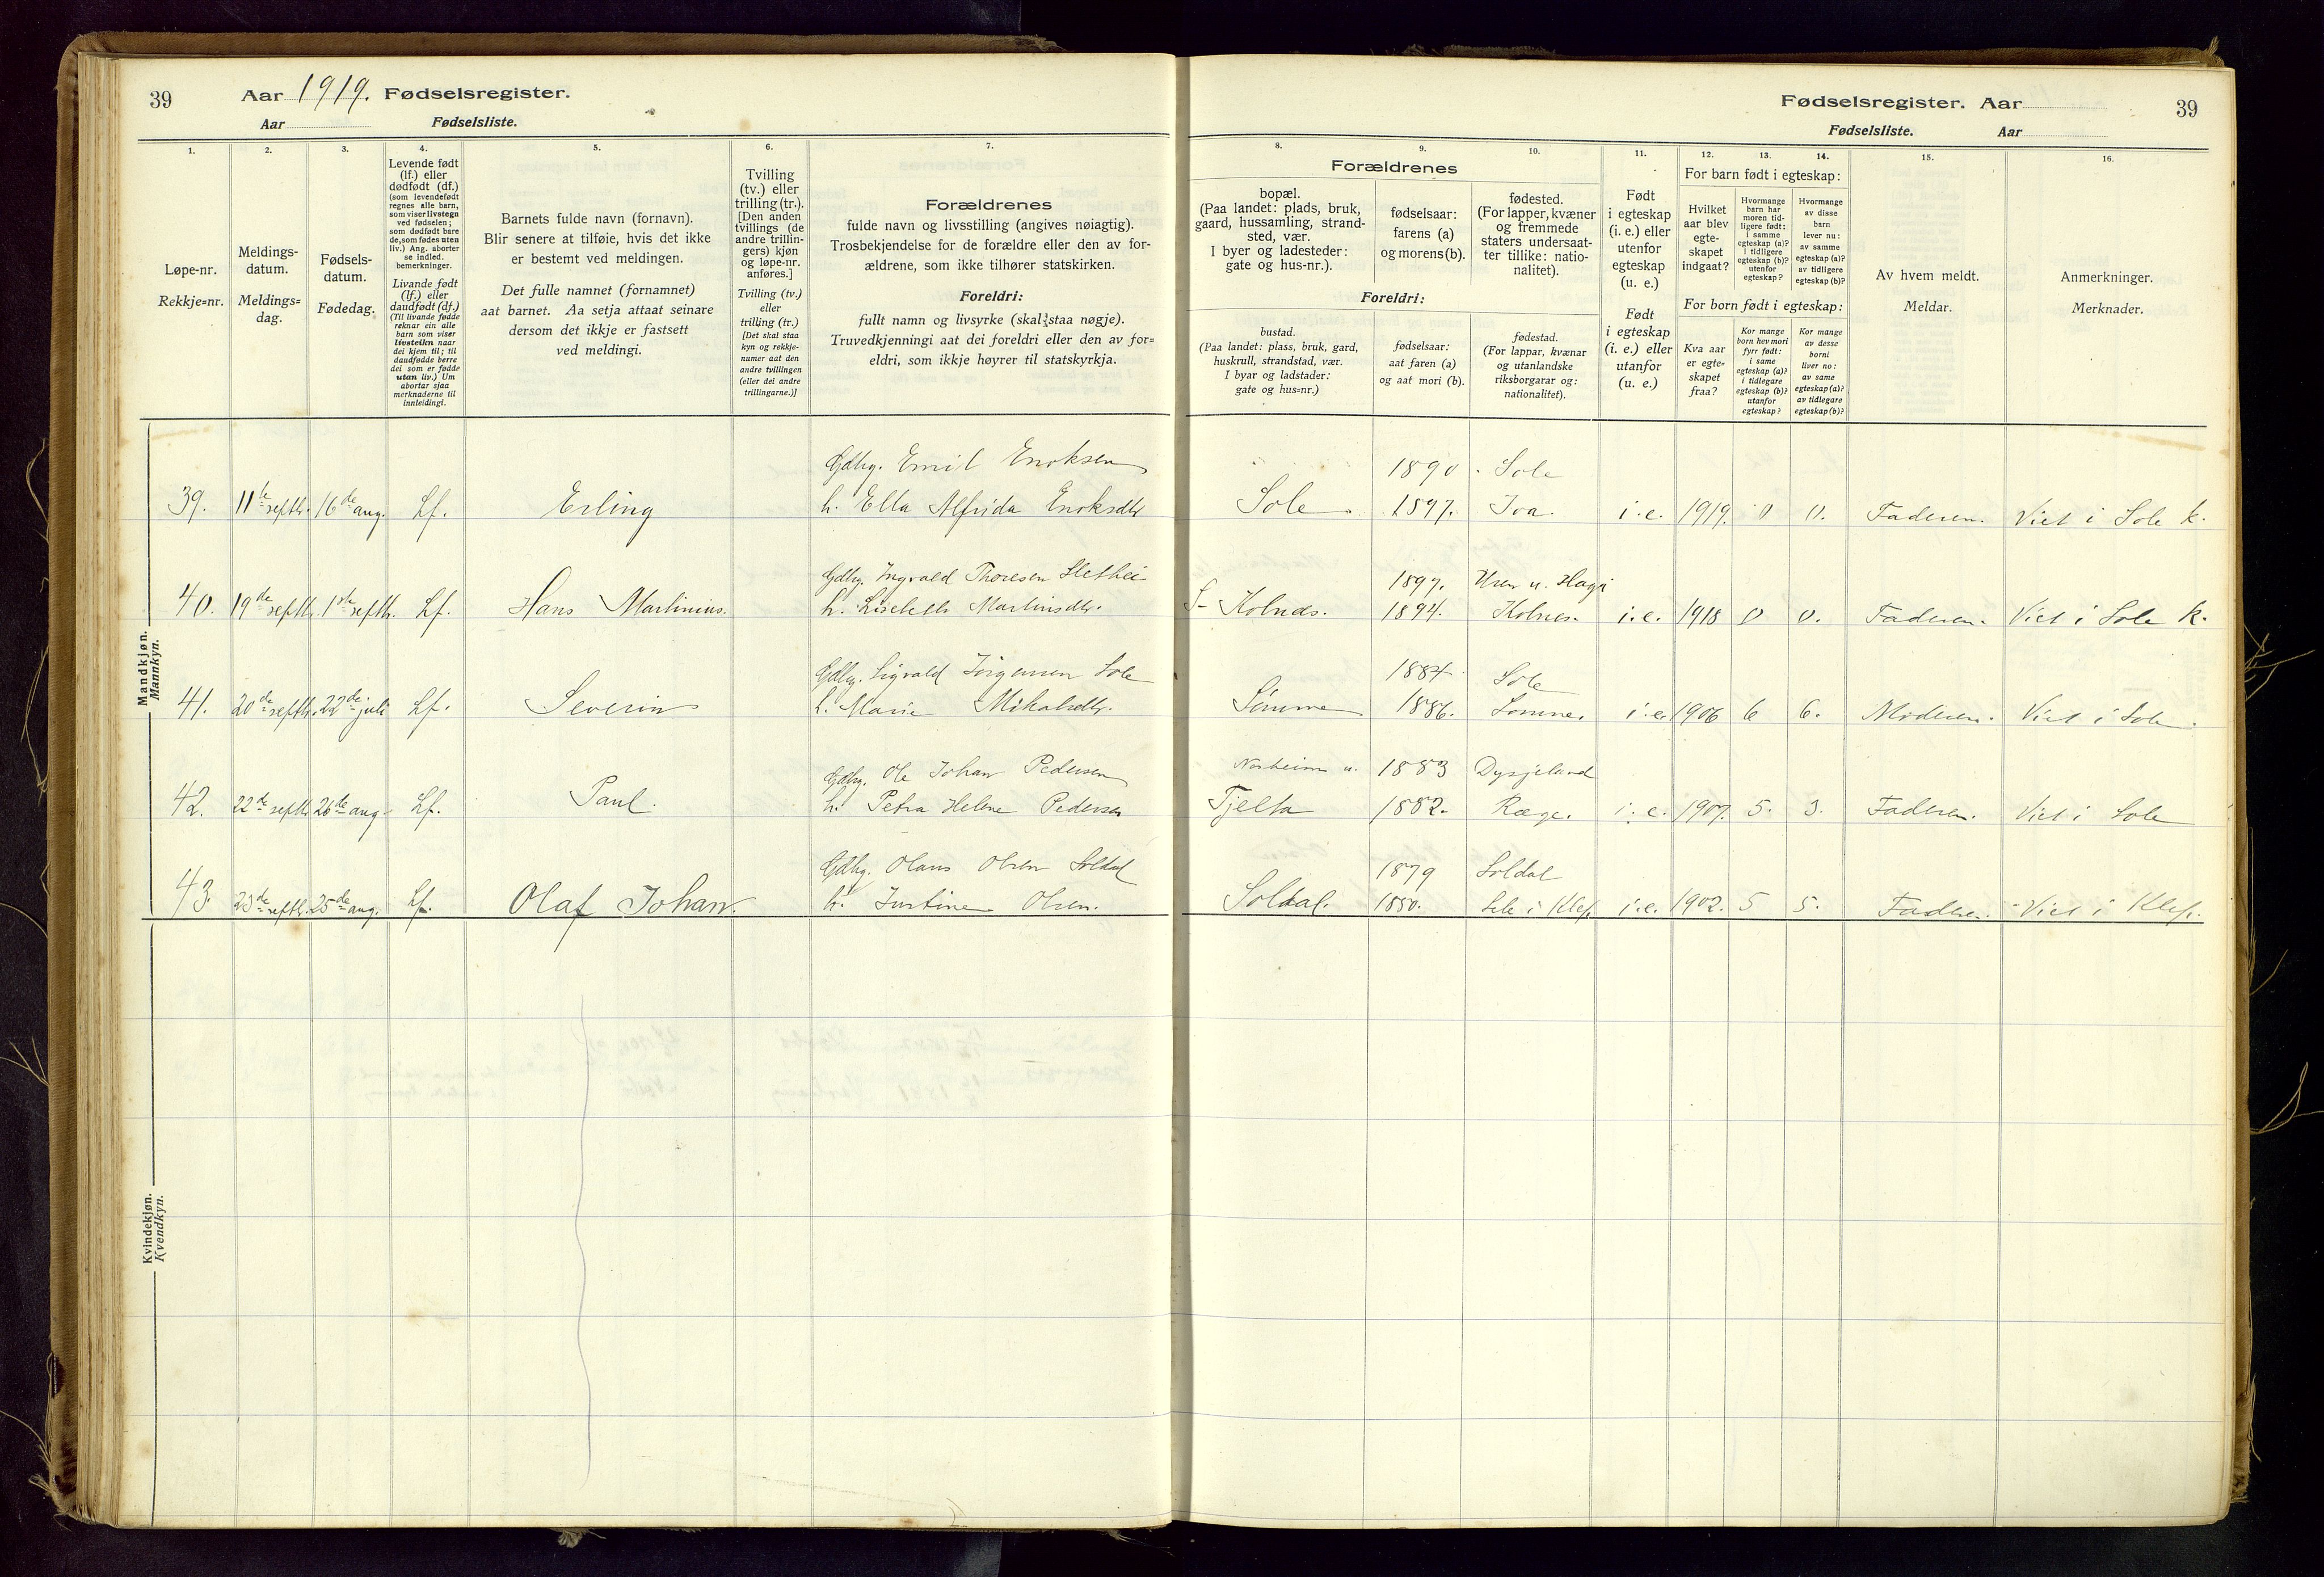 39
Aar 1919. Fødselsregister.
Aar
Fødselsliste.
1.
Løpe-nr.
Rekkje=nr.
2.
Meldings-
datum.
Meldings=
dag.
3.
Fødsels-
datum.
Fødedag.
4.
Levende født
(lf.) eller
dødfødt (df.)
(som levendefødt
regnes alle barn,
som viser livstegn
ved fødselen;
som dødfødt bare
de, som fødes uten
liv.) Ang. aborter
se indled.
bemerkninger.
Livande født
(lf.) eller
daudfødt (df.)
(Til livande fødde
reknar ein alle
barn som viser
livsteikn naar
dei kjem til; til
daudfødde berre
dei som er fødde
utan liv.) Um
abortar sjaa
merknaderne til
innleidingi.
5.
Barnets fulde navn (fornavn).
Blir senere at tilføie, hvis det ikke
er bestemt ved meldingen.
Det fulle namnet (fornamnet)
aat barnet. Aa setja attaat seinare
dersom det ikkje er fastsett
ved meldingi.
6.
Tvilling
(tv.) eller
trilling (tr.).
[Den anden
tvillings (de
andre trillin-
gers) kjøn
og løpe-nr.
anføres.]
Tvilling (tv.)
eller
trilling (tr.)
[Det skal staa
kyn og rekkje-
numer aat den
andre tvillingen
(eller dei andre
trillingarne.)]
7.
Forældrenes
fulde navn og livsstilling (angives nøiagtig).
Trosbekjendelse for de forældre eller den av for-
ældrene, som ikke tilhører statskirken.
Foreldri:
fullt namn og livsyrke (skal staa nøgje).
Truvedkjenningi aat dei foreldri eller den av for=
eldri, som ikkje høyrer til statskyrkja.
Mandkjøn.
Mannkyn.
Gdbg. Emil Enoksen
39. 11te septbr. 16de aug. Lf. Erling h. Ella Alfrida Enoksdtr
Gdbg. Ingvald Thoresen
40. 19de septbr. 1ste septbr. Lf. Hans Martinius. h. Lisebeth Martinsdtr.
Gdbg. Sigvald Jørgensen Sole
41. 20de septbr. 22de juli Lf. Severin h. Marie Mikalsdtr.
Gdbg. Ole Johan Pedersen
42. 22de septbr. 26de aug. Lf. Paul. h. Petra Helene Pedersen
Gdbg. Olaus Olsen Soldal
43. 23de septbr. 25de aug. Lf. Olaf Johan. h. Justine Olsen.
Kvindekjøn.
Kvendkyn.
Fødselsregister. Aar
39
Fødselsliste. Aar
8.
Forældrenes
bopæl.
(Paa landet: plads, bruk,
gaard, hussamling, strand-
sted, vær.
I byer og ladesteder:
gate og hus-nr.).
Foreldri:
bustad.
(Paa landet: plass, bruk, gard,
huskrull, strandstad, vær.
I byar og ladstader:
gate og hus=nr.)
9.
fødselsaar:
farens (a)
og morens (b).
fødselsaar:
aat faren (a)
og aat mori (b).
10.
fødested.
(For lapper, kvæner
og fremmede
staters undersaat-
ter tillike: natio-
nalitet).
fødestad.
(For lappar, kvænar
og utanlandske
riksborgarar og:
nationalitet).
11.
Født
i egteskap
(i. e.) eller
utenfor
egteskap
(u. e.)
Født
i egteskap
(i. e.) eller
utanfor
egteskap
(u. e.)
12. 13. 14.
For barn født i egteskap:
Hvilket
aar blev
egte-
skapet
indgaat?
Hvormange
barn har
moren tid-
ligere født:
i samme
egteskap (a)?
i tidligere
egteskap (b)?
utenfor
egteskap?
Hvormange
av disse
barn
lever nu:
av samme
egteskap (a)?
av tidligere
egteskap (b)?
For born født i egteskap:
Kva aar
er egte=
skapet
fraa?
Kor mange
born hev mori
fyrr født:
i same
egteskap (a)?
i tidlegare
egteskap (b)?
utanfor
egteskap?
Kor mange
av desse
borni
liver no:
av same
egteskap (a)?
av tidlegare
egteskap (b)?
15.
Av hvem meldt.
Meldar.
16.
Anmerkninger.
Merknader.
1890 Sole
Sole. 1897. Joa. i.e. 1919. 0 0. Faderen. Viet i Sole k.
1897.
Kolnes. 1894. Kolnes. i.e. 1918 0 0. Faderen. Viet i Sole k.
1884 Sole
Sømme 1886. Sømme. i.e. 1906 6 6. Moderen. Viet i Sole.
1883 Dysjeland
Tjelta 1882. Ræge. i.e. 1907. 5. 3. Faderen. Viet i Sole
1879 Soldal
Soldal. 1880. i Klep i.e. 1902. 5 5. Faderen. Viet i Klep.